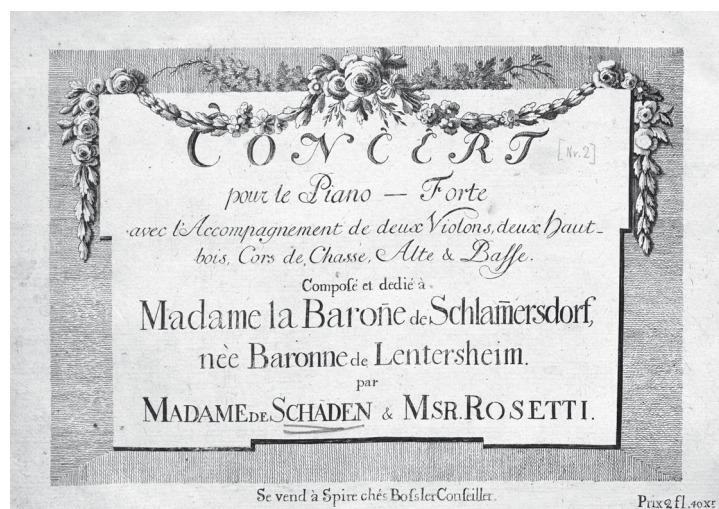 CONCÈRT
[Nr. 2]
pour le Piano — Forte
avec l'Accompagnement de deux Violons, deux Haut-
bois, Cors de, Chasse, Alte & Baſse.
Compoſé et dedié à
Madame la Baron̄e de Schlam̄ersdorf,
nèe Baronne de Lentersheim.
par
MADAME DE SCHADEN & MSR. ROSETTI.
Se vend à Spire chés Boſsler Conſeiller.
Prix 2 fl. 40 xr